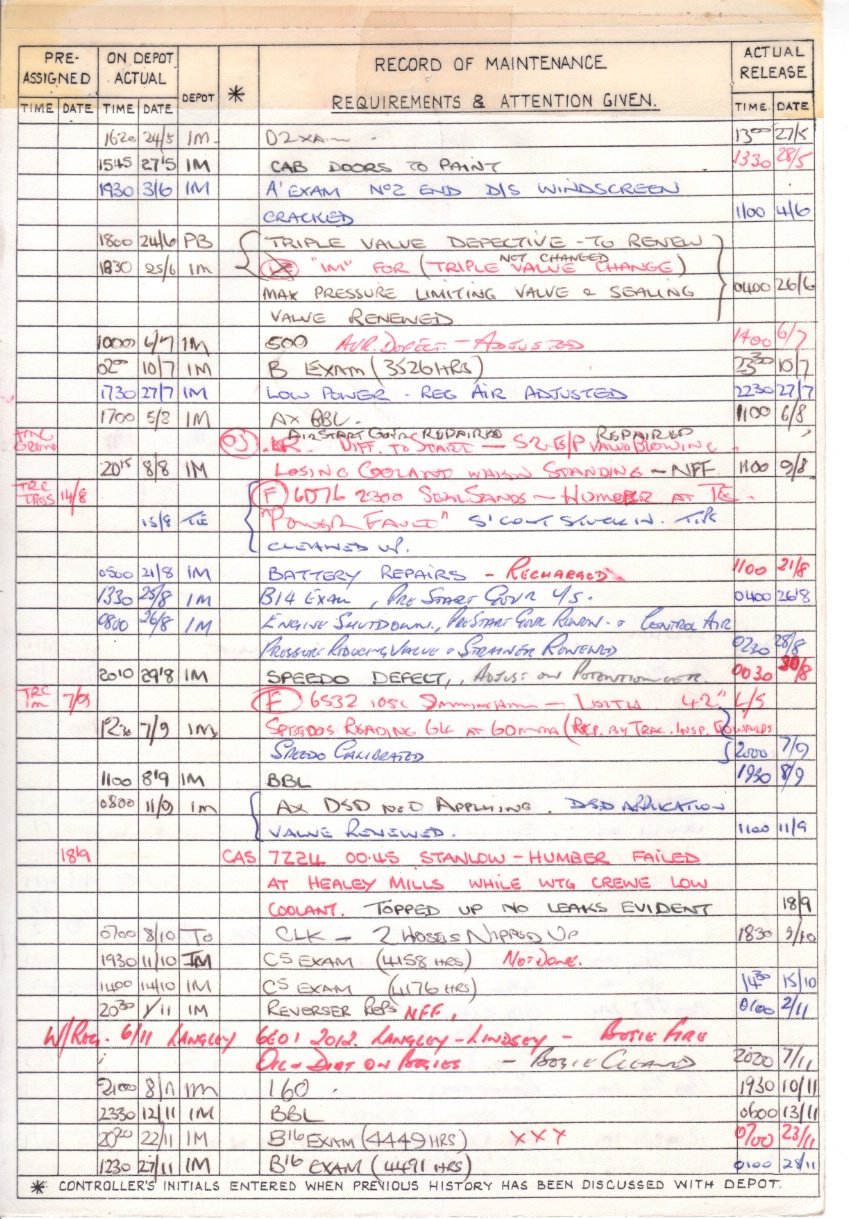 PRE-ASSIGNED ON DEPOT ACTUAL DEPOT * RECORD OF MAINTENANCE REQUIREMENTS & ATTENTION GIVEN. ACTUAL RELEASE
TIME DATE TIME DATE TIME DATE
1620 24/5 IM 1300 27/5
1545 27/5 IM CAB DOORS TO PAINT 1330 28/5
1930 3/6 IM A' EXAM No2 END D/S WINDSCREEN
CRACKED 1100 4/6
1800 24/6 PB TRIPLE VALVE DEFECTIVE - TO RENEW
NOT CHANGED
1830 25/6 IM "IM" FOR (TRIPLE VALVE CHANGE)
MAX PRESSURE LIMITING VALVE & SEALING 0400 26/6
VALVE RENEWED
1000 6/7 IM 500 AIR DEFECT - ADJUSTED 1400 6/7
0200 10/7 IM B EXAM (3526 HRS) 2330 10/7
1730 27/7 IM LOW POWER - REG AIR ADJUSTED 2230 27/7
1700 5/8 IM AX BBL. 1100 6/8
AIR START GOV'R REPAIRED REPAIRED
DIFF. TO START - E/P VALVE BLOWING
2015 8/8 IM LOSING COOLANT WHEN STANDING - NFF. 1100 9/8
14/8 (F) 6D76 2300 SEAL SANDS - HUMBER AT TE.
15/8 TE "POWER FAULT" STUCK IN.
CLEANED UP.
0500 21/8 IM BATTERY REPAIRS - RECHARGED 1100 21/8
1330 25/8 IM B14 EXAM, PRE START GOVR U/S. 0400 26/8
0800 26/8 IM ENGINE SHUTDOWN., PRE START GOVR RENEW. & CONTROL AIR
PRESSURE REDUCING VALVE & STRAINER RENEWED 0230 28/8
2010 29/8 IM SPEEDO DEFECT, ADJUST ON POTENTIOMETER. 0030 30/8
7/9 (F) 6S32 IMMINGHAM - LEITH 42" L/S
1230 7/9 IM SPEEDOS READING 64 AT 60MPH (REP. BY TRAC. INSP. EDWARDS
SPEEDO CALIBRATED 2000 7/9
1100 8/9 IM BBL 1930 8/9
0800 11/9 IM AX DSD NOT APPLYING. DSD APPLICATION
VALVE RENEWED. 1100 11/9
18/9 CAS 7Z24 00.45 STANLOW - HUMBER FAILED
AT HEALEY MILLS WHILE WTG CREWE LOW
COOLANT. TOPPED UP NO LEAKS EVIDENT 18/9
0700 8/10 TO CLK - 2 HOSES NIPPED UP 1830 9/10
1930 11/10 IM C5 EXAM (4158 HRS) NOT DONE. 
1400 14/10 IM C5 EXAM (4176 HRS) 1430 15/10
2030 1/11 IM REVERSER REPS NFF, 0100 2/11
W/REQ. 6/11 LANGLEY 6E01 2012. LANGLEY - LINDSEY - BOGIE FIRE
OIL & DIRT ON BOGIES - BOGIE CLEANED 2020 7/11
2100 8/11 IM 160. 1930 10/11
2330 12/11 IM BBL 0600 13/11
2020 22/11 IM B16 EXAM (4449 HRS) XXX 0700 23/11
1230 27/11 IM B16 EXAM (4491 HRS) 0100 28/11
* CONTROLLER'S INITIALS ENTERED WHEN PREVIOUS HISTORY HAS BEEN DISCUSSED WITH DEPOT.